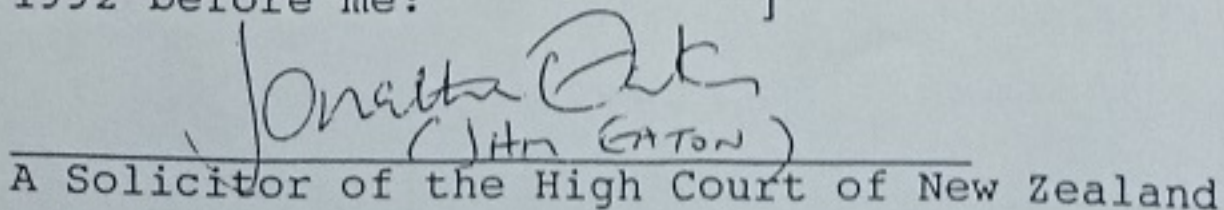 1992 before me:
Jonathan Eaton
(JHM EATON)
A Solicitor of the High Court of New Zealand